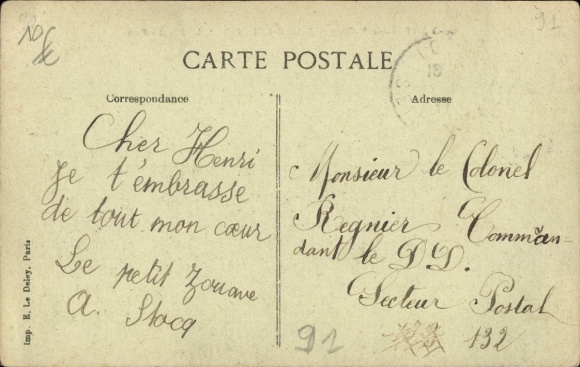 91
CARTE POSTALE
Correspondance
Adresse
Cher Henri
je t'embrasse
de tout mon cœur
Le petit Zouave
A. Stocq
Monsieur le Colonel
Regnier Comman=
dant le D.D.
Secteur Postal
132
91
Imp. E. Le Deley, Paris